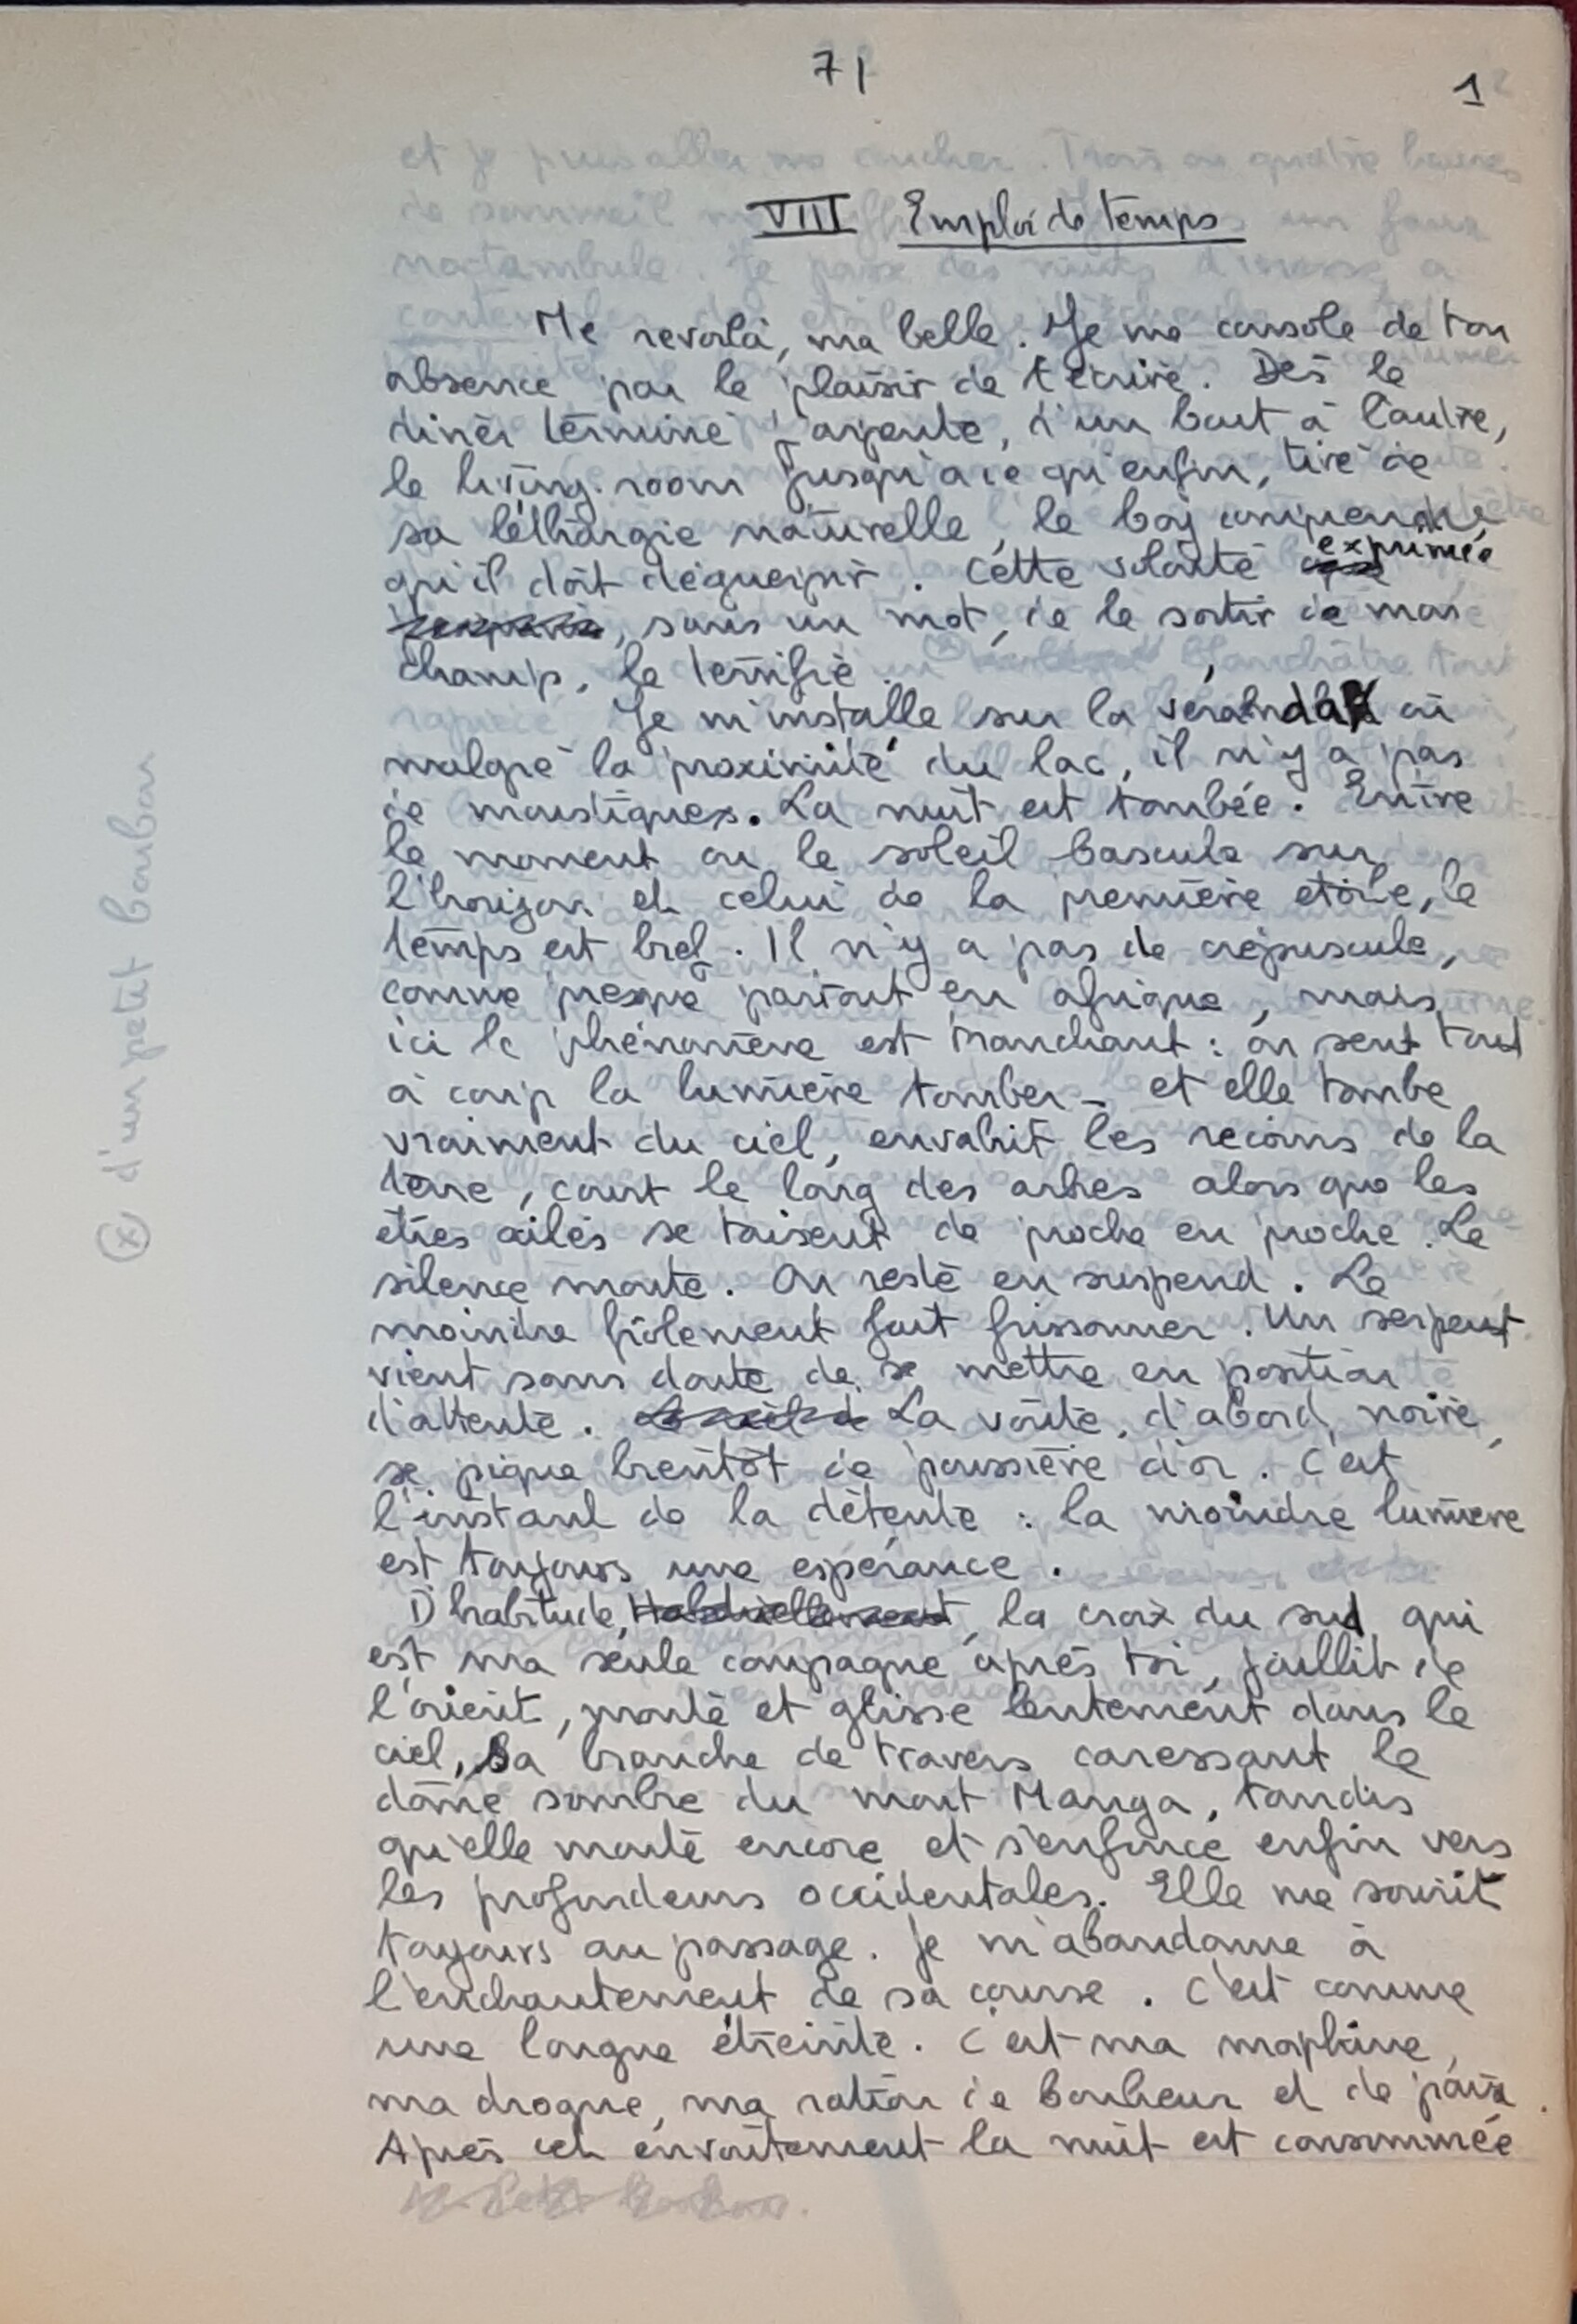 71
1
VIII Emploi de temps
Me revoilà, ma belle. Je me console de ton
absence par le plaisir de t'écrire. Dès le
dîner terminé j'arpente, d'un bout à l'autre,
le living-room jusqu'à ce qu'enfin, tiré de
sa léthargie naturelle, le boy comprenne
qu'il doit déguerpir. Cette volonté exprimée
, sans un mot, de le sortir de mon
champ, le terrifie.
Je m'installe sur la véranda où
malgré la proximité du lac, il n'y a pas
de moustiques. La nuit est tombée. Entre
le moment où le soleil bascule sur
l'horizon et celui de la première étoile, le
temps est bref. Il n'y a pas de crépuscule,
comme presque partout en afrique, mais
ici le phénomène est tranchant : on sent tout
à coup la lumière tomber - et elle tombe
vraiment du ciel, envahit les recoins de la
terre, court le long des arbres alors que les
êtres ailés se taisent de proche en proche. Le
silence monte. On reste en suspend. Le
moindre frôlement fait frissonner. Un serpent
vient sans doute de se mettre en position
d'attente. La voûte, d'abord noire,
se pique bientôt de poussière d'or. C'est
l'instant de la détente : la moindre lumière
est toujours une espérance.
D'habitude, Habituellement, la croix du sud qui
est ma seule compagne après toi, jaillit de
l'orient, monte et glisse lentement dans le
ciel, sa branche de travers caressant le
dôme sombre du mont Manga, tandis
qu'elle monte encore et s'enfonce enfin vers
les profondeurs occidentales. Elle me sourit
toujours au passage. Je m'abandonne à
l'enchantement de sa course. C'est comme
une longue étreinte. C'est ma morphine,
ma drogue, ma ration de bonheur et de paix.
Après cet envoûtement la nuit est consommée
d'un petit bonbon